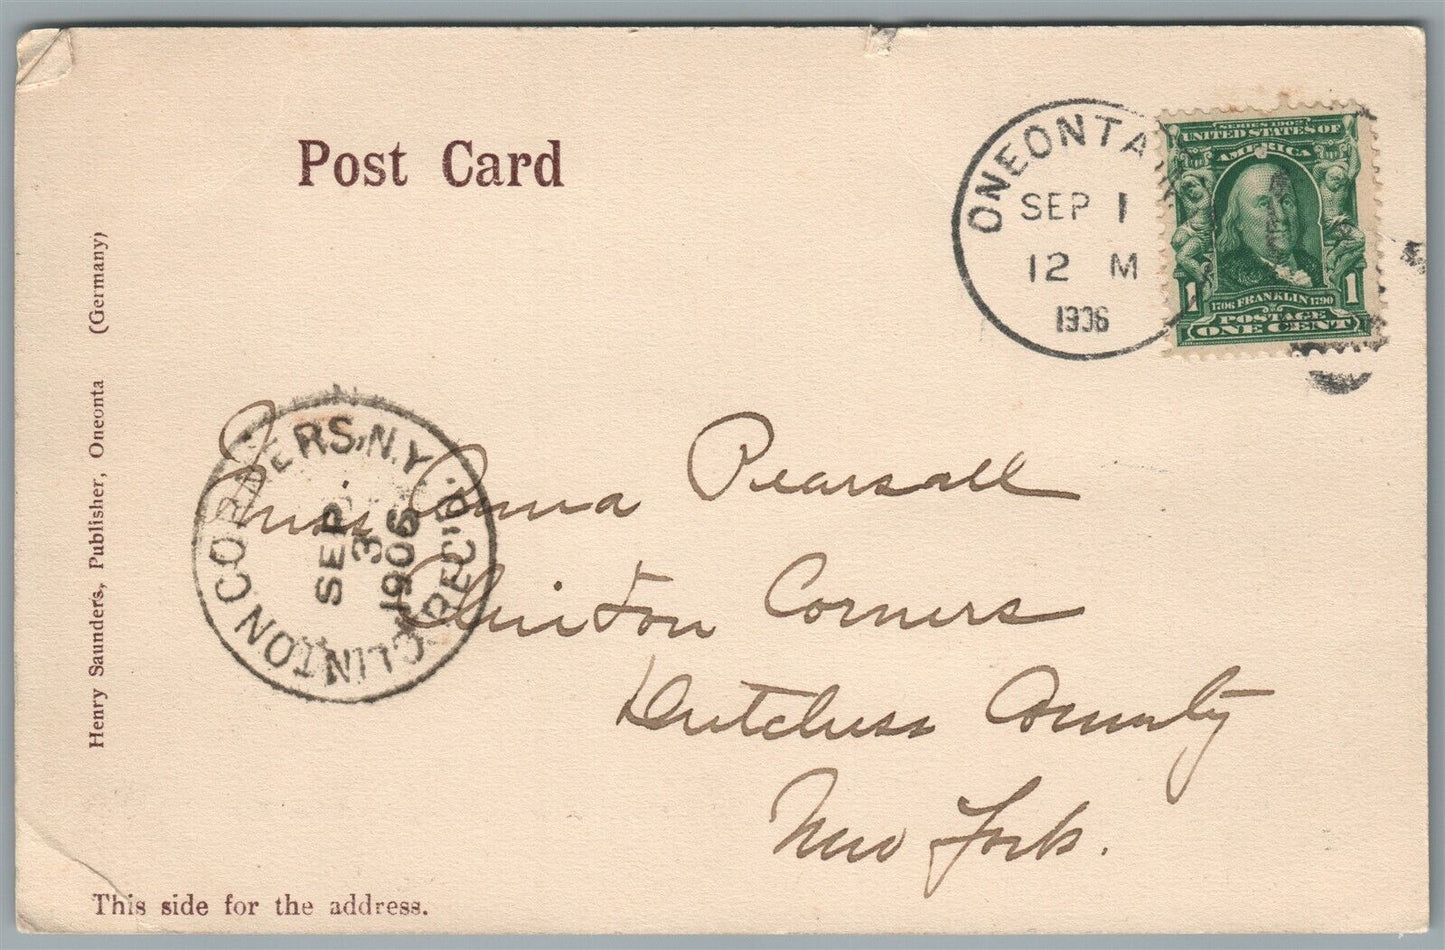 Post Card
ONEONTA
SEP 1
12 M
1906
SERIES 1902
UNITED STATES OF
AMERICA
1 1
1706 FRANKLIN 1790
POSTAGE
ONE CENT
Henry Saunders, Publisher, Oneonta (Germany)
CLINTON CORNERS, N.Y. REC'D.
SEP
3
1906
Miss Anna Pearsall
Clinton Corners
Dutchess County
New York.
This side for the address.